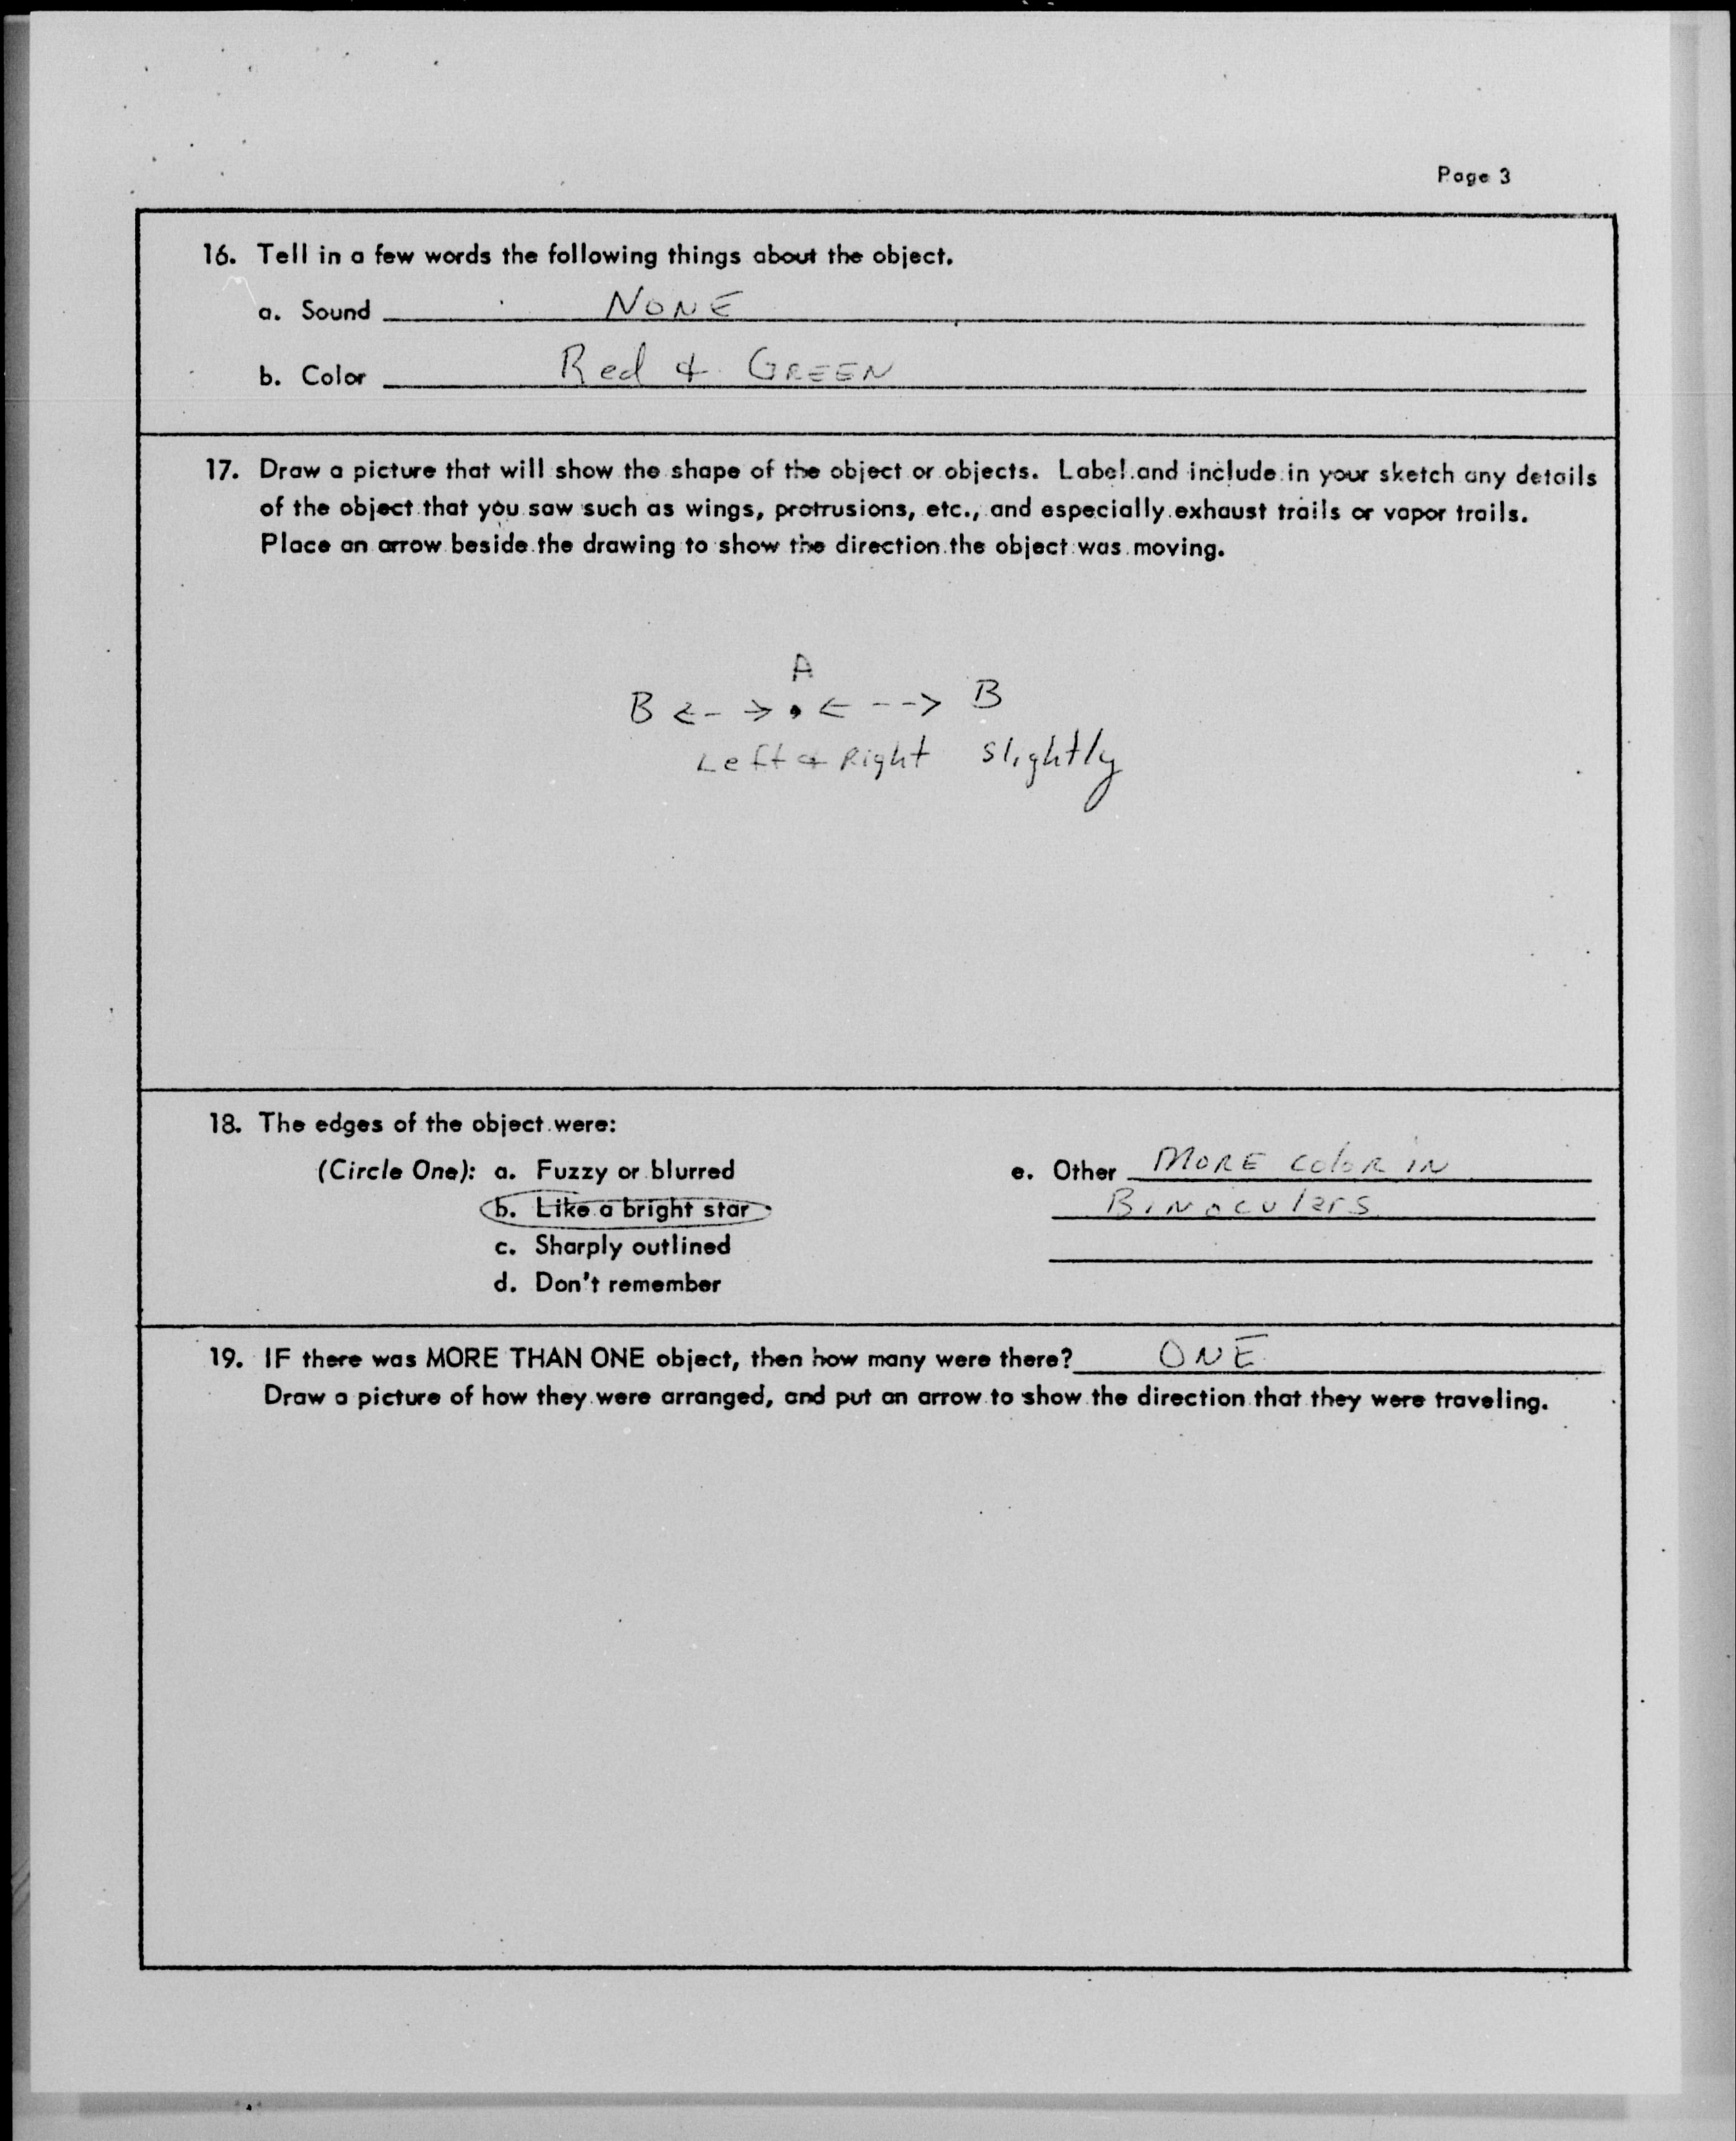 Page 3
16. Tell in a few words the following things about the object.
a. Sound NONE
b. Color Red & GREEN
17. Draw a picture that will show the shape of the object or objects. Label and include in your sketch any details
of the object that you saw such as wings, protrusions, etc., and especially exhaust trails or vapor trails.
Place an arrow beside the drawing to show the direction the object was moving.
A
B <- -> . <- --> B
Left & Right slightly
18. The edges of the object were:
(Circle One): a. Fuzzy or blurred
b. Like a bright star
c. Sharply outlined
d. Don't remember
e. Other MORE color IN
BINoculars
19. IF there was MORE THAN ONE object, then how many were there? ONE
Draw a picture of how they were arranged, and put an arrow to show the direction that they were traveling.